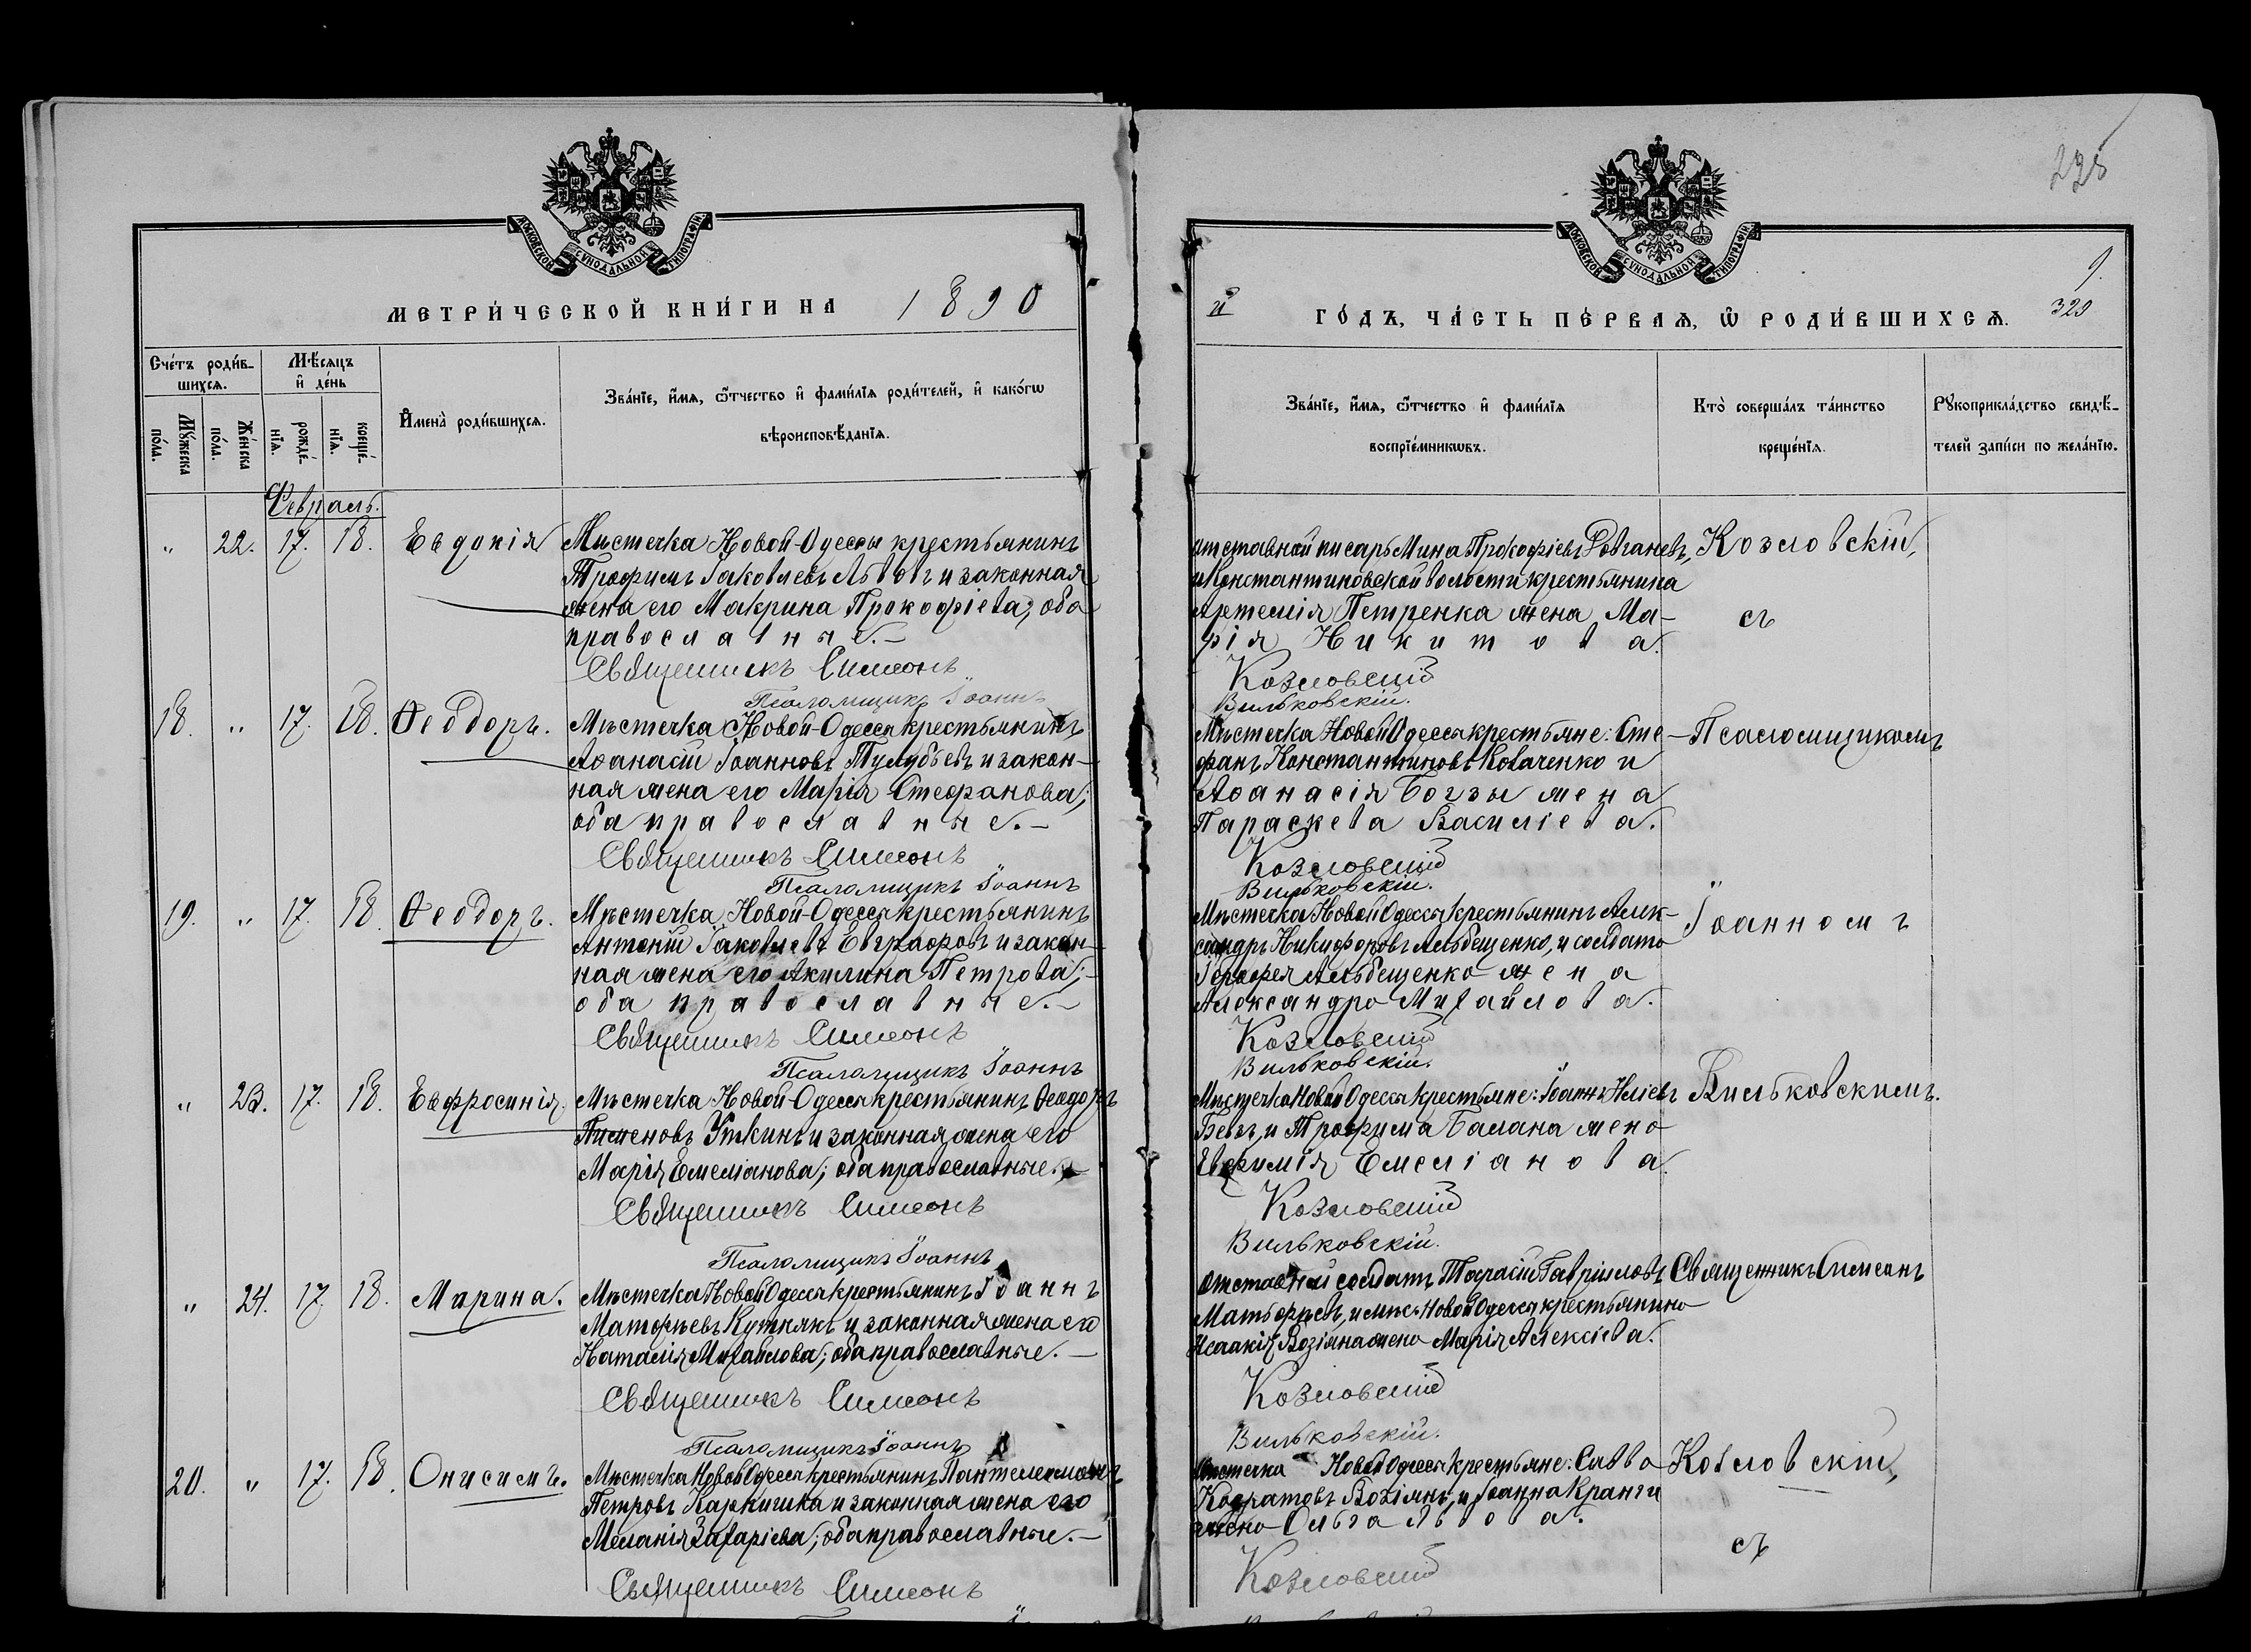 МОСКОВСКОЙ СѴНОДАЛЬНОЙ ТИПОГРАФІИ
МЕТРИ́ЧЕСКОЙ КНИ́ГИ НА 1890
Сче́тъ роди́в-
шихся.
Мѣ́сяцъ
и҆ де́нь
Мꙋ́жеска
по́ла.
Же́нска
по́ла.
рожде́-
нїѧ.
креще́-
нїѧ.
И҆мена̀ роди́вшихсѧ.
Зва́нїе, и҆́мѧ, ѻ҆́тчество и҆ фами́лїѧ роди́телей, и҆ како́гѡ
вѣроисповѣ́данїѧ.
Февраль.
" 22. 17. 18. Евдокія
Мѣстечка Новой-Одессы крестьянинъ
Трофимъ Іаковлевъ Львовъ и законная
жена его Макрина Прокофіева; оба
православные.-
Священникъ Симеонъ
Псаломщикъ Іоаннъ
18. " 17. 18. Ѳеодоръ.
Мѣстечка Новой-Одессы крестьянинъ
Аѳанасій Іоанновъ Тулубьевъ и закон-
ная жена его Марія Стефанова;
оба православные.-
Священникъ Симеонъ
Псаломщикъ Іоаннъ
19. " 17. 18. Ѳеодоръ.
Мѣстечка Новой-Одессы крестьянинъ
Антоній Іаковлевъ Евграфовъ и закон-
ная жена его Акилина Петрова;-
оба православные.-
Священникъ Симеонъ
Псаломщикъ Іоаннъ
" 23. 17. 18. Евфросинія.
Мѣстечка Новой-Одессы крестьянинъ Ѳеодоръ
Пименовъ Уткинъ и законная жена его
Марія Емеліанова; оба православные.-
Священникъ Симеонъ
Псаломщикъ Іоаннъ
" 24. 17. 18. Марина.
Мѣстечка Новой Одессы крестьянинъ Іоаннъ
Матфѣевъ Кутнякъ и законная жена его
Наталія Михайлова; оба православные.-
Священникъ Симеонъ
Псаломщикъ Іоаннъ
20. " 17. 18. Онисимъ.
Мѣстечка Новой Одессы крестьянинъ Пантелеимонъ
Петровъ и законная жена его
Меланія Захаріева; оба православные.-
Священникъ Симеонъ
228
МОСКОВСКОЙ СѴНОДАЛЬНОЙ ТИПОГРАФІИ
9.
й ГО́ДЪ, ЧА́СТЬ ПЕ́РВАѦ, Ѡ҆ РОДИ́ВШИХСѦ. 329
Зва́нїе, и҆́мѧ, ѻ҆́тчество и҆ фами́лїѧ
воспрїе́мникѡвъ.
Кто̀ соверша́лъ та́инство
креще́нїѧ.
Рꙋкоприкла́дство свидѣ́-
телей за́писи по жела́нїю.
отставной писарь Мина Прокофіевъ
и Константиновской волости крестьянина
Артемія Петренка жена Ма-
рія Никитова.
Козловскій
Вильковскій.
Козловскій,
съ
Мѣстечка Новой Одессы крестьяне: Сте-
фанъ Константиновъ Коваченко и
Аѳанасія Богзы жена
Параскева Василіева.
Козловскій
Вильковскій.
Псаломщикомъ
Мѣстечка Новой Одессы крестьянинъ Алек-
сандръ Никифоровъ Альбещенко, и солдата
Альбещенко жена
Александра Михайлова.
Козловскій
Вильковскій.
Іоанномъ
Мѣстечка Новой Одессы крестьяне: Іоаннъ Иліевъ
и Трофима Балана жена
Евфимія Емеліанова.
Козловскій
Вильковскій.
Вильковскимъ.
отставной солдатъ Тарасій Гавріиловъ
Матфѣевъ, и мѣс. Новой Одессы крестьянина
Исаакія Возіяна жена Марія Алексіева.
Козловскій
Вильковскій.
Священникъ Симеонъ
Мѣстечка Новой Одессы крестьяне: Савва
Кодратовъ Возіянъ, и Іоанна Кранги
жена Ольга Львова.
Козловскій
Козловскій,
съ